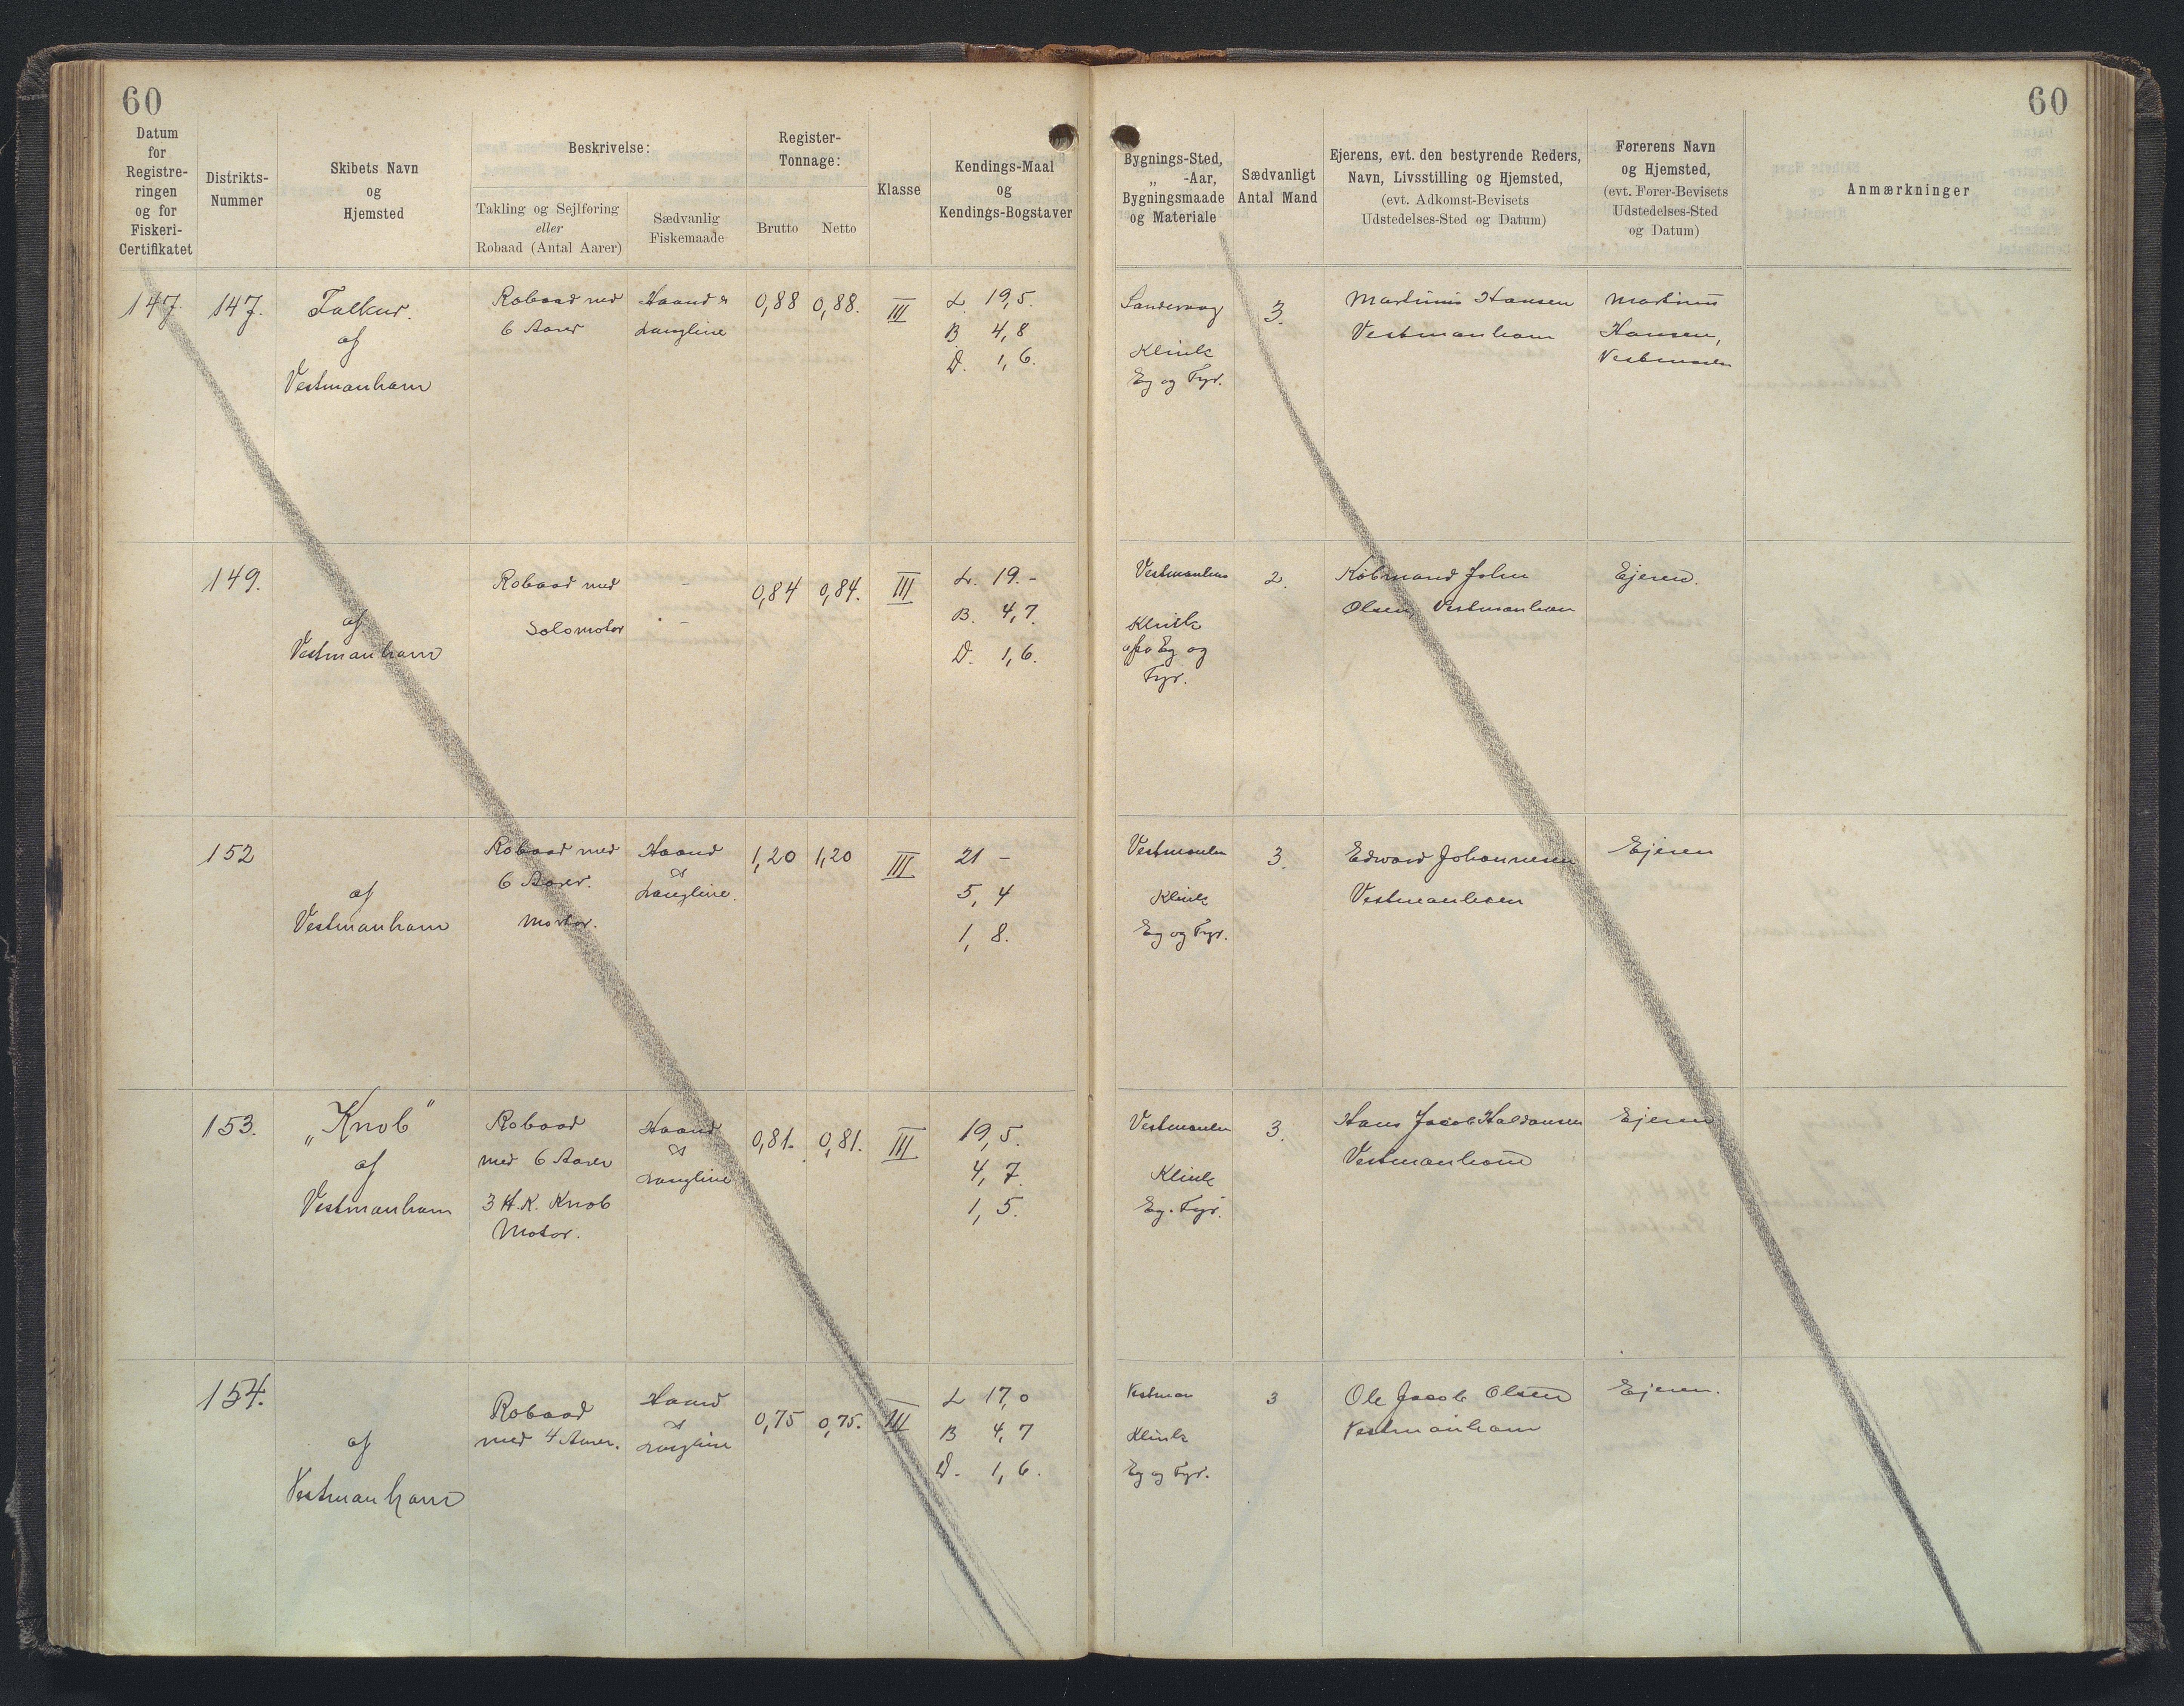 60
60
Datum
for
Registre-
ringen
og for
Fiskeri-
Certifikatet
Distrikts-
Nummer
Skibets Navn
og
Hjemsted
Beskrivelse:
Takling og Sejlføring
eller
Robaad (Antal Aarer)
Sædvanlig
Fiskemaade
Register-
Tonnage:
Brutto
Netto
Klasse
Kendings-Maal
og
Kendings-Bogstaver
Bygnings-Sted,
„ -Aar,
Bygningsmaade
og Materiale
Sædvanligt
Antal Mand
Ejerens, evt. den bestyrende Reders,
Navn, Livsstilling og Hjemsted,
(evt. Adkomst-Bevisets
Udstedelses-Sted og Datum)
Førerens Navn
og Hjemsted,
(evt. Fører-Bevisets
Udstedelses-Sted
og Datum)
Anmærkninger
147.
147.
Falkur.
af
Vestmanhavn
Robaad med
6 Aarer
Haand &
Langline
0,88
0,88.
III
L. 19,5.
B 4,8
D. 1,6.
Sandevaag
Klink
Eg og Fyr.
3.
Martinus Hansen
Vestmanhavn
Martinus
Hansen,
149.
af
Vestmanhavn
Robaad med
Solomotor
-
-
0,84
0,84.
III
L. 19.-
B. 4,7.
D. 1,6.
Vestmanhvn
Klink
Eg og
Fyr.
2.
Købmand John
Olsen, Vestmanhavn
Ejeren.
152
af
Vestmanhavn
Robaad med
6 Aarer.
Motor.
Haand
&
Langline.
1,20
1,20
III
21 -
5,4
1,8.
Vestmanhn
Klink
Eg og Fyr.
3.
Edward Johannesen
Vestmanhavn
Ejeren
153.
„Knob"
af
Vestmanhavn
Robaad
med 6 Aarer
3 H.K. Knob
Motor.
Haand
&
Langline
0,81.
0,81.
III
19,5.
4,7.
1,5.
Vestmanhn
Klink
Eg. Fyr.
3.
Hans Jacob Haldansen
Vestmanhavn
Ejeren
154.
af
Vestmanhavn
Robaad
med 4 Aarer.
Haand
&
Langline
0,75
0,75.
III
L 17,0
B 4,7
D. 1,6.
Vestman
Klink
Eg og Fyr.
3
Ole Jacob Olsen
Vestmanhavn
Ejeren.